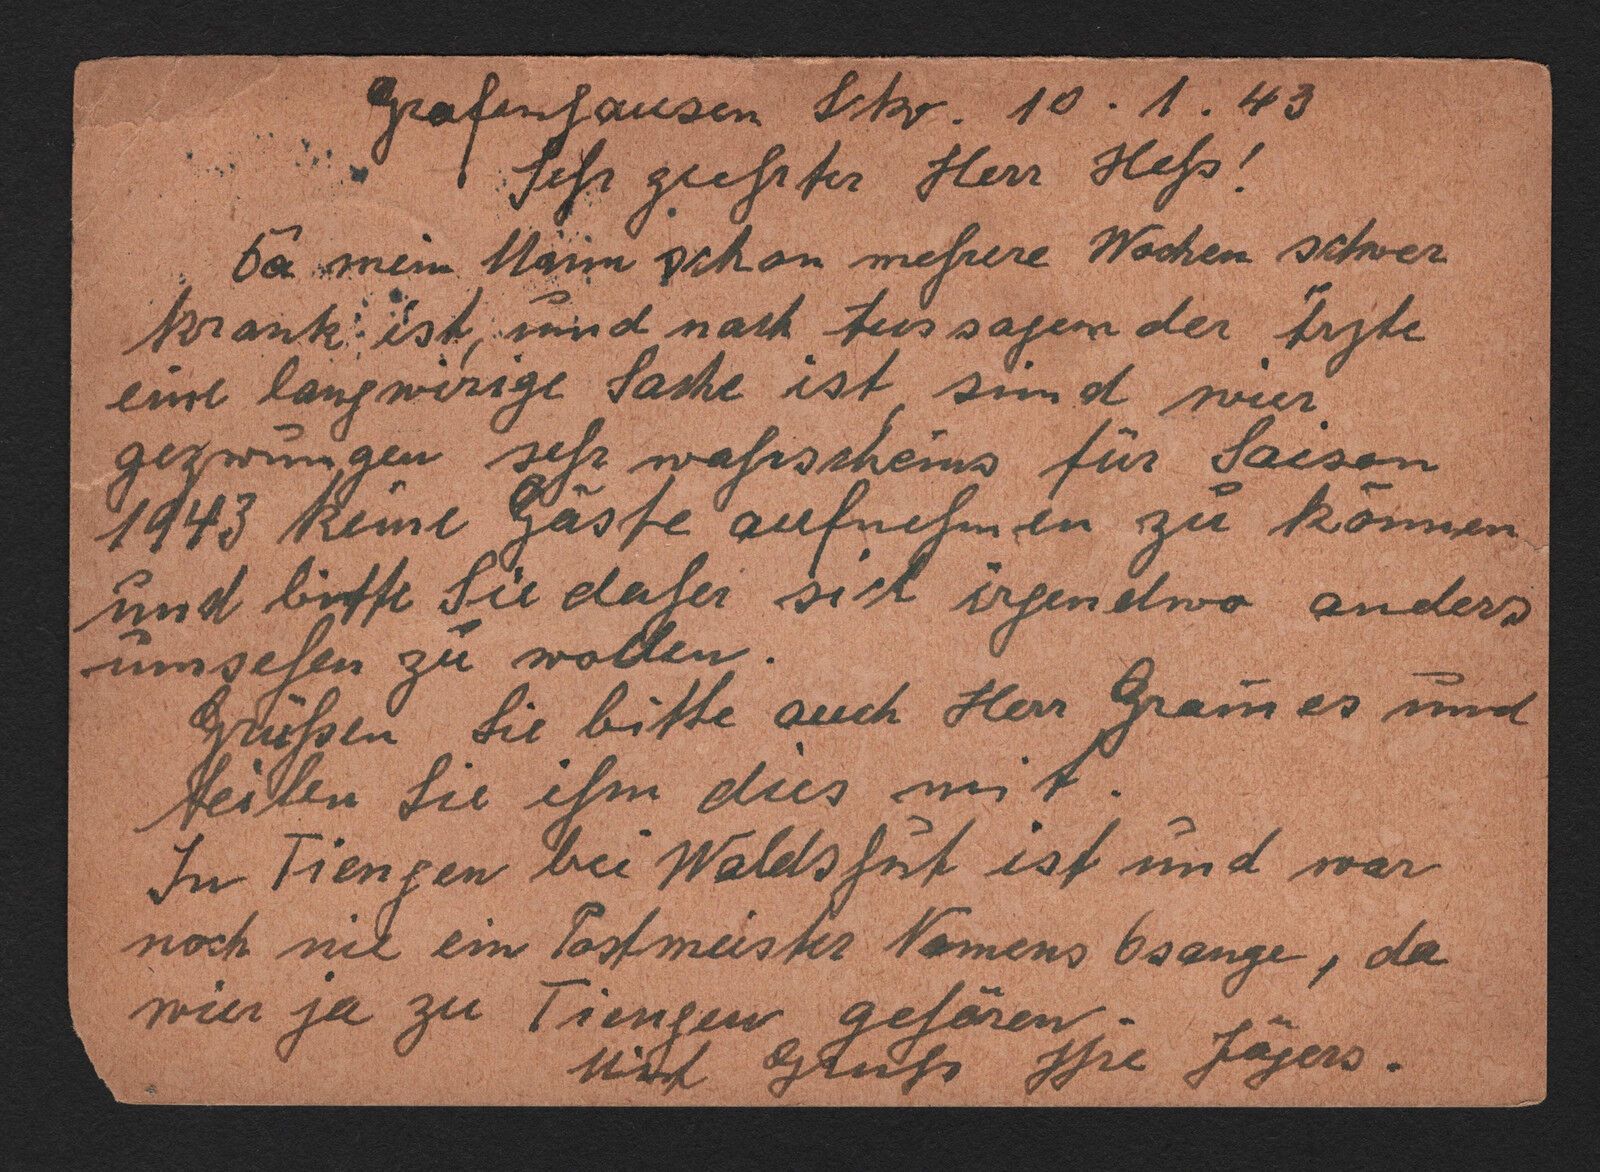 Grafenhausen Schw. 10.1.43
Sehr geehrter Herr Heß!
Da mein Mann schon mehrere Wochen schwer
krank ist, und nach Aussagen der Ärzte
eine langwirige Sache ist, sind wier
gezwungen sehr wahrscheins für Saison
1943 keine Gäste aufnehmen zu können
und bitte Sie daher sich irgendwo anders
umsehen zu wollen.
Grüßen Sie bitte auch Herr und
teilen Sie ihm dies mit.
In Tiengen bei Waldshut ist und war
noch nie ein Postmeister Namens , da
wier ja zu Tiengen gehören.
Mit Gruß Ihre Jägers.